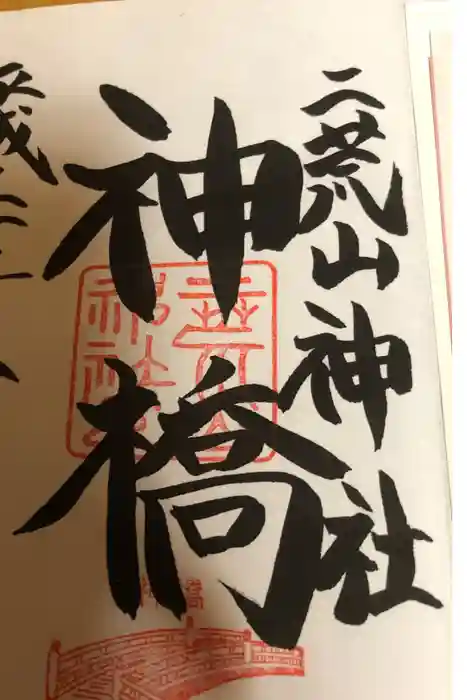 二荒山神社
神橋
二荒山
神社
神橋